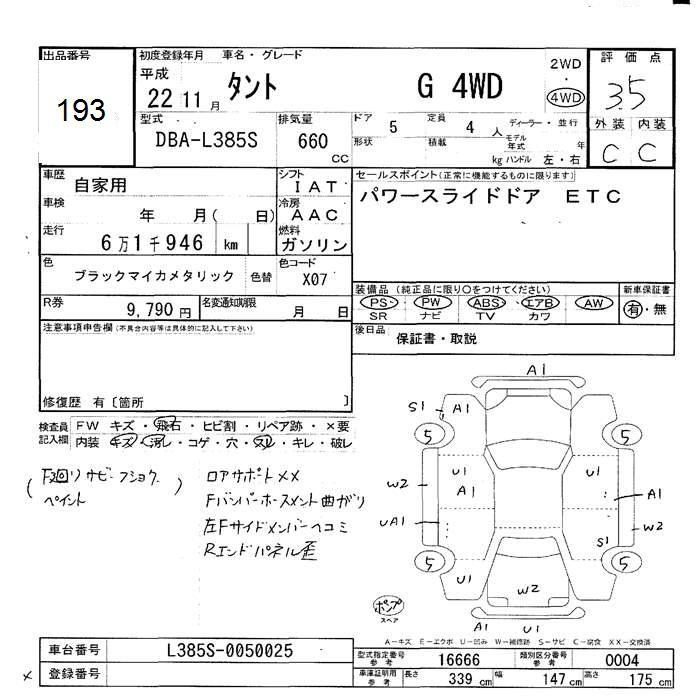 出品番号 初度登録年月 車名・グレード 2WD 評価点
193 平成 22 11月 タント G 4WD ・ 4WD 3.5
型式 排気量 ドア 5 定員 4人 ディーラー・並行 外装 内装
DBA-L385S 660 CC 形状 積載 kg モデル年式 年 ハンドル 左・右 C C
車歴 自家用 シフト IAT セールスポイント(正常に機能するものに限ります)
車検 年 月( 日) 冷房 AAC パワースライドドア ETC
走行 6万1千946 km 燃料 ガソリン
色 ブラックマイカメタリック 色替 色コード X07
装備品 (純正品に限り○をつけてください) 新車保証書
R券 9,790円 名変通知期限 月 日 PS・ PW ABS・ エアB AW 有・無
SR ナビ TV カワ
注意事項申告欄(不具合内容等は具体的に記入して下さい) 後日品 保証書・取説
修復歴 有〔箇所 〕
検査員記入欄 FW キズ・飛石・ヒビ割・リペア跡・×要
内装 キズ・汚レ・コゲ・穴・スレ・キレ・破レ
A1
S1 A1
5 5
U1 U1
W2 A1 A1
UA1 W2
S1
5 5
U1 W2
A1 U1
(F廻リ サビ・フショク )
ペイント
ロアサポートXX
Fバンパーホースメント曲がり
左Fサイドメンバーヘコミ
Rエンドパネル歪
ポンプ
スペア
A-キズ E-エクボ U-凹み W-補修跡 S-サビ C-腐食 XX-交換済
車台番号 L385S-0050025 型式指定番号 参考 16666 類別区分番号 参考 0004
× 登録番号 車庫証明用 参考 長さ 339 cm 幅 147 cm 高さ 175 cm